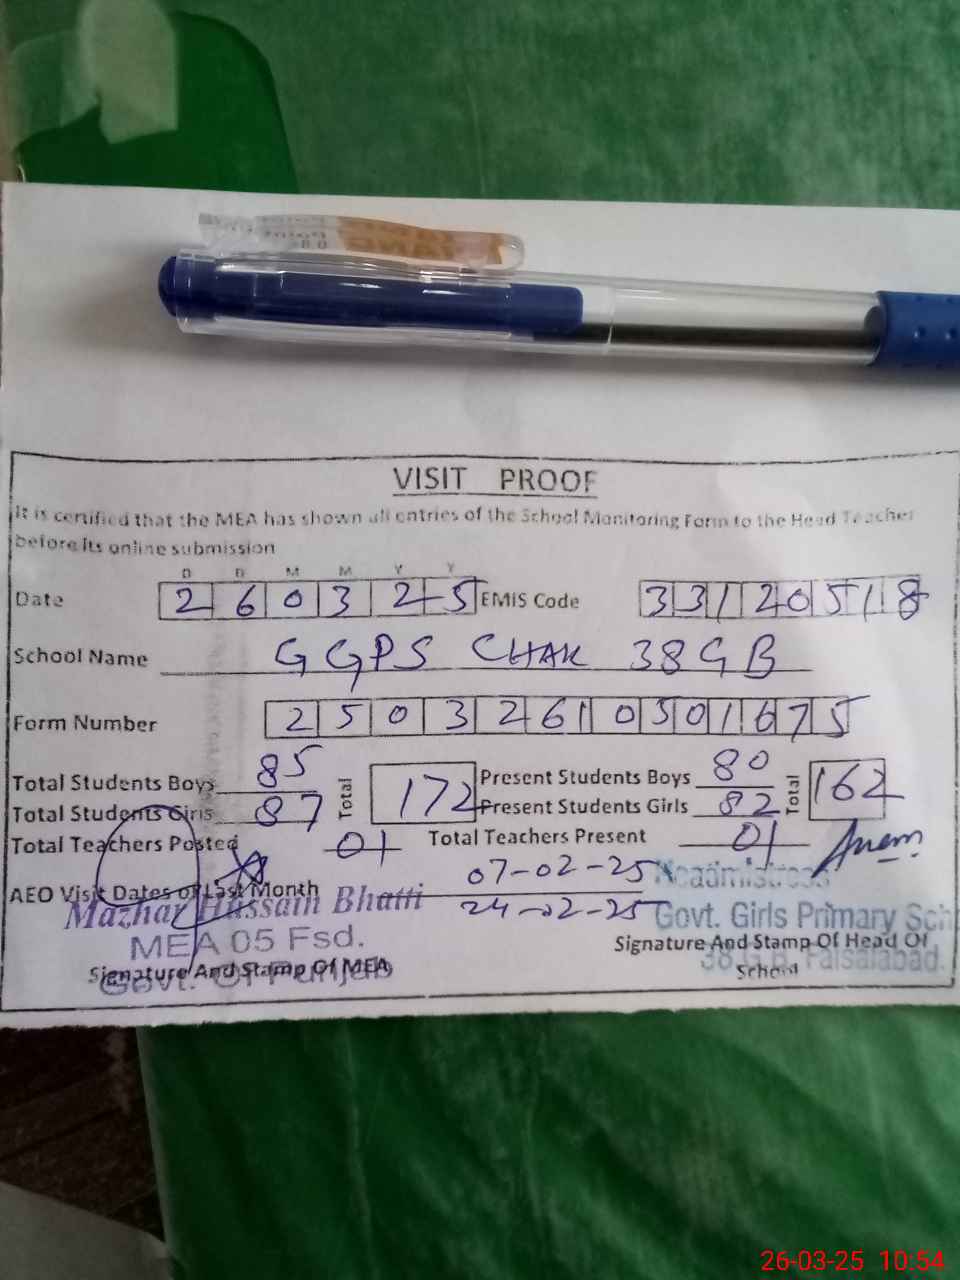 VISIT PROOF
It is certified that the MEA has shown all entries of the School Monitoring Form to the Head Teacher
before its online submission
D D M M Y Y
Date 2 6 0 3 2 5 EMIS Code 3 3 1 2 0 5 1 8
School Name GGPS CHAK 38 GB
Form Number 2 5 0 3 2 6 1 0 5 0 1 6 7 5
Total Students Boys 85 Total 172 Present Students Boys 80 Total 162
Total Students Girls 87 Present Students Girls 82
Total Teachers Posted 01 Total Teachers Present 01
AEO Visit Dates of Last Month 07-02-25
24-02-25
Mazhar Hussain Bhatti
MEA 05 Fsd.
Govt. Of Punjab
Signature And Stamp Of MEA
Headmistress
Govt. Girls Primary Sch
38 G.B. Faisalabad.
Signature And Stamp Of Head Of
School
26-03-25 10:54